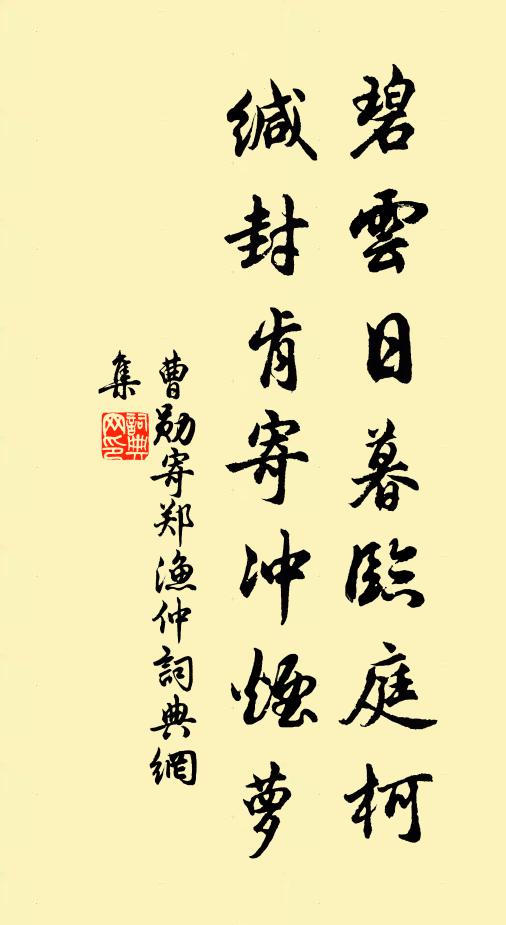 碧雲日暮臨庭柯
緘封肯寄冲煙夢
曹勛寄郑漁仲詞典網
集
詞典網印